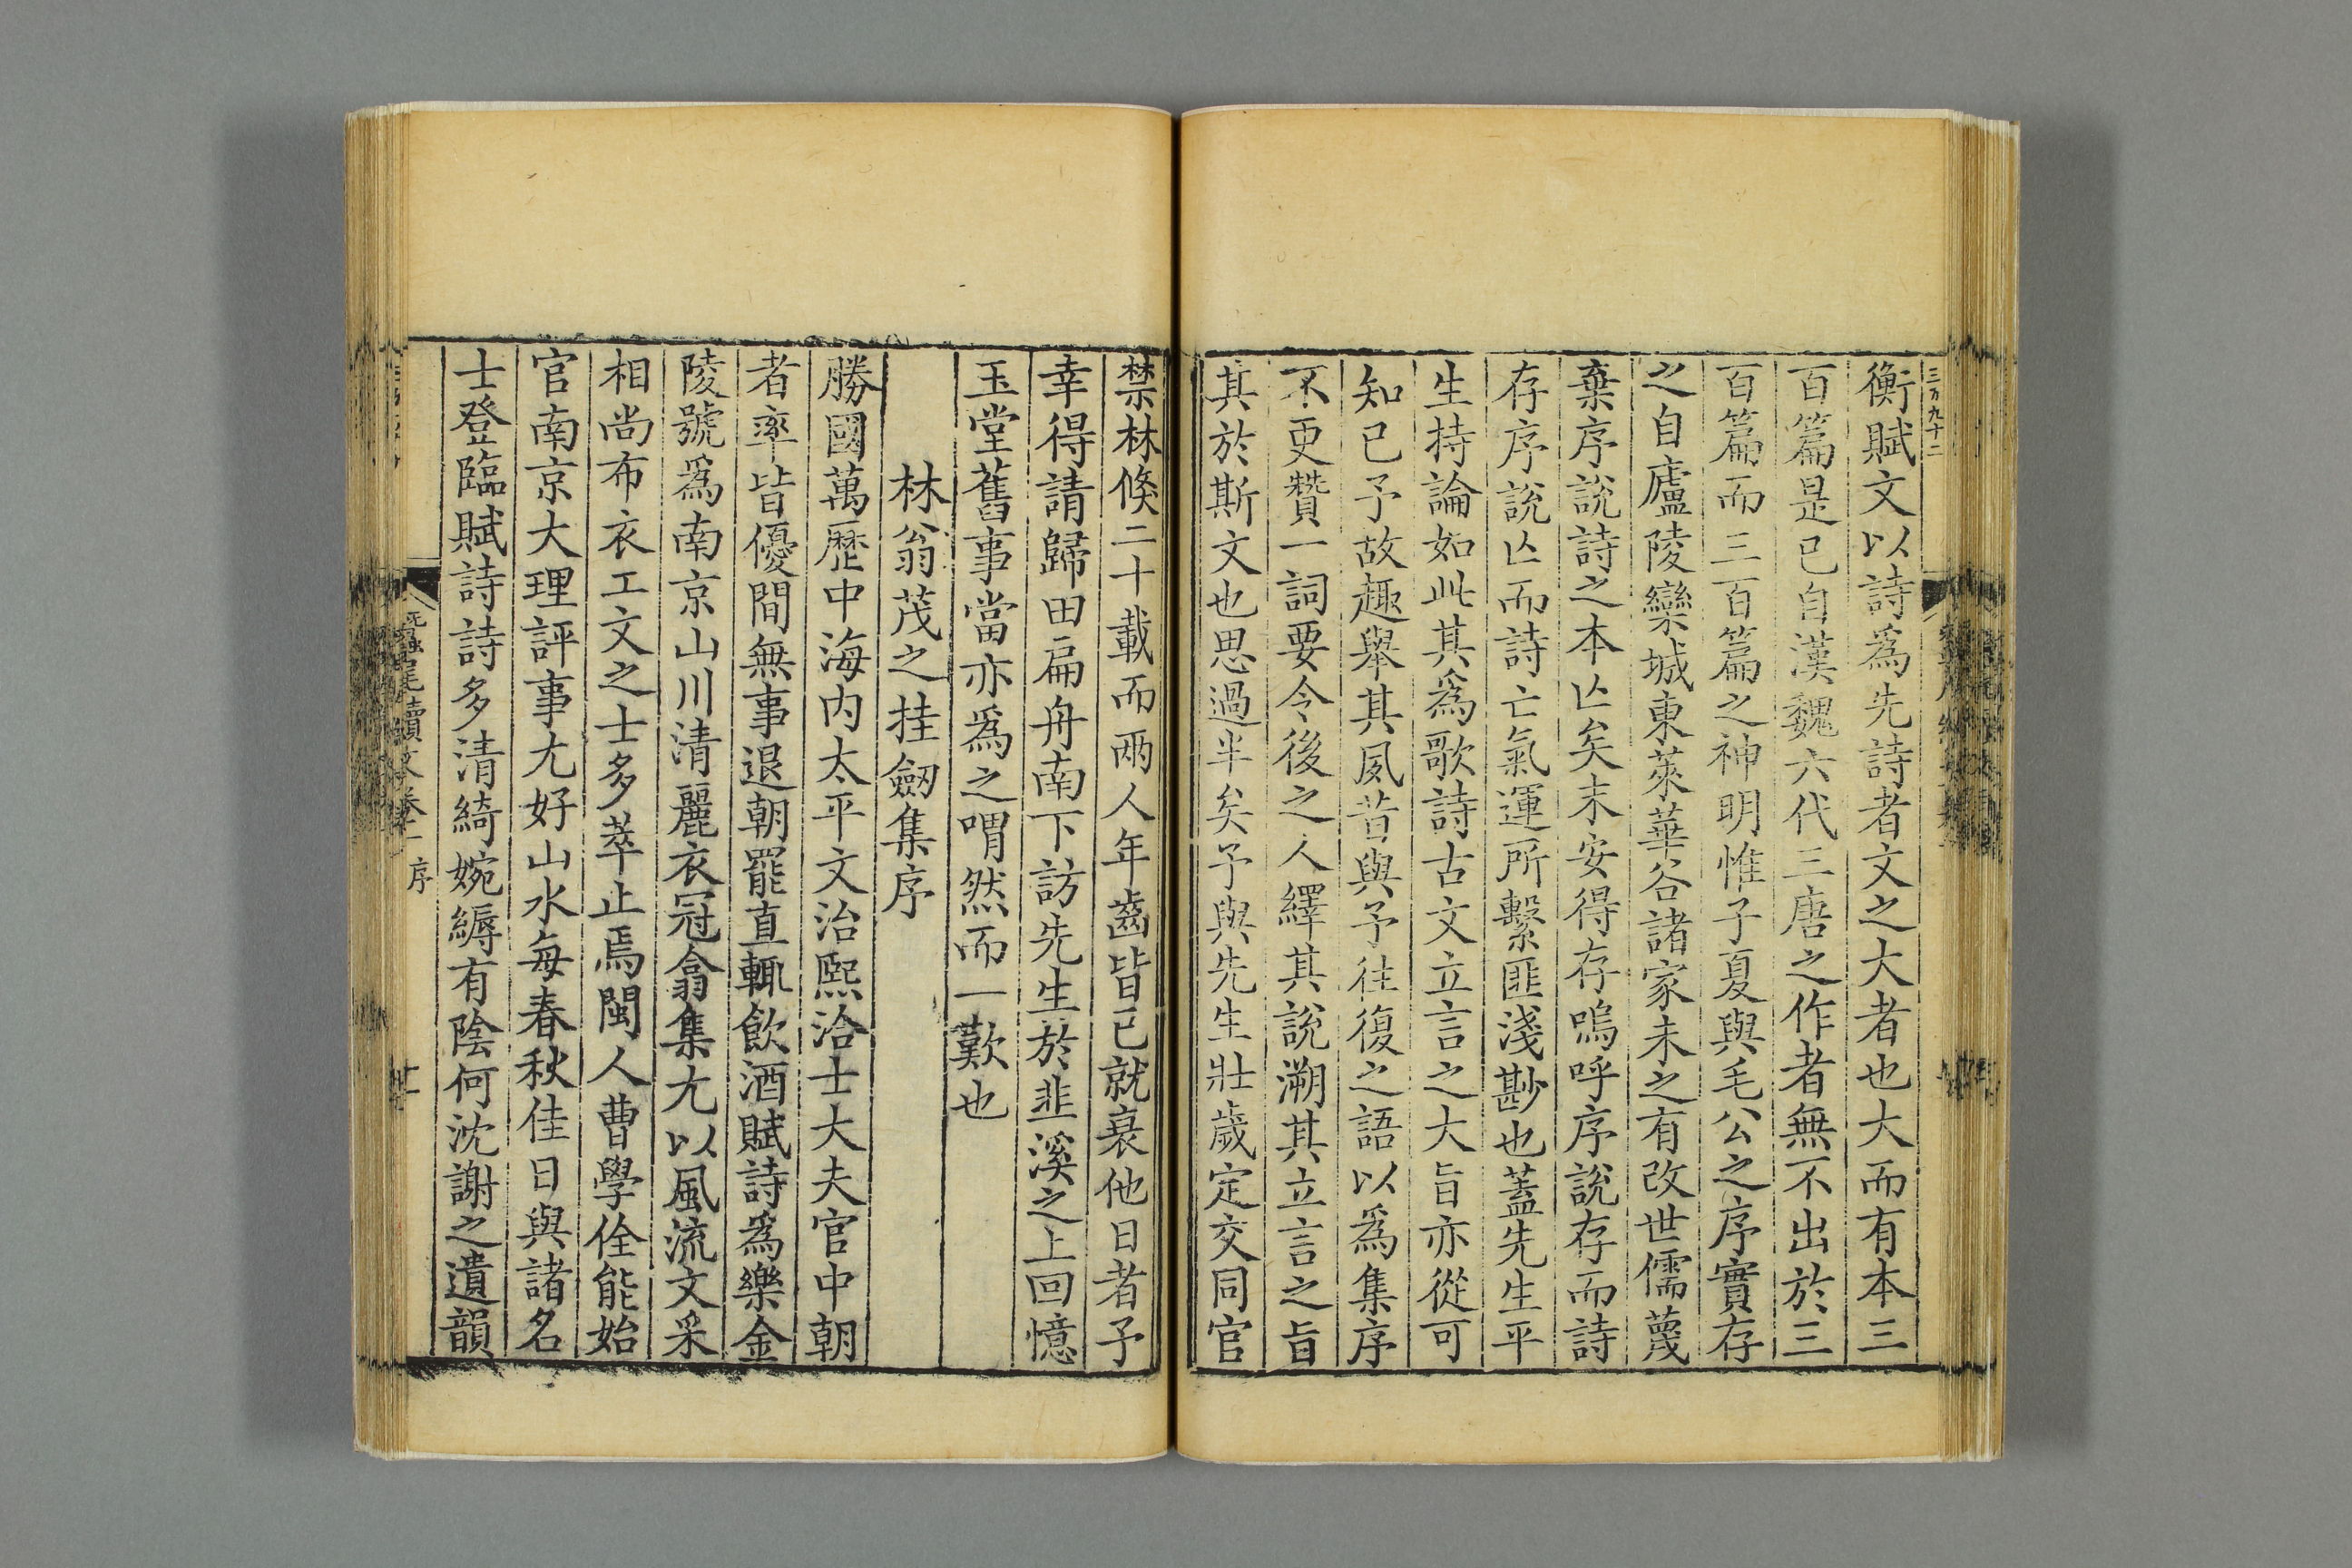 三百九十二
衡賦文以詩爲先詩者文之大者也大而有本三
百篇是已自漢魏六代三唐之作者無不出於三
百篇而三百篇之神明惟子夏與毛公之序實存
之自廬陵欒城東萊華谷諸家未之有改世儒蔑
棄序說詩之本亾矣末安得存嗚呼序說存而詩
存序說亾而詩亡氣運所繫匪淺尠也蓋先生平
生持論如此其爲歌詩古文立言之大旨亦從可
知已予故趣舉其夙昔與予往復之語以爲集序
不更贊一詞要令後之人繹其說溯其立言之旨
其於斯文也思過半矣予與先生壯歲定交同官
禁林倐二十載而兩人年齒皆已就衰他日者予
幸得請歸田扁舟南下訪先生於韭溪之上回憶
玉堂舊事當亦爲之喟然而一歎也
林翁茂之挂劒集序
勝國萬歷中海内太平文治熙洽士大夫官中朝
者率皆優閒無事退朝罷直輒飲酒賦詩爲樂金
陵號爲南京山川清麗衣冠翕集尤以風流文采
相尚布衣工文之士多萃止焉閩人曹學佺能始
官南京大理評事尤好山水每春秋佳日與諸名
士登臨賦詩詩多清綺婉縟有陰何沈謝之遺韻
蠶尾續文卷一 序
十一